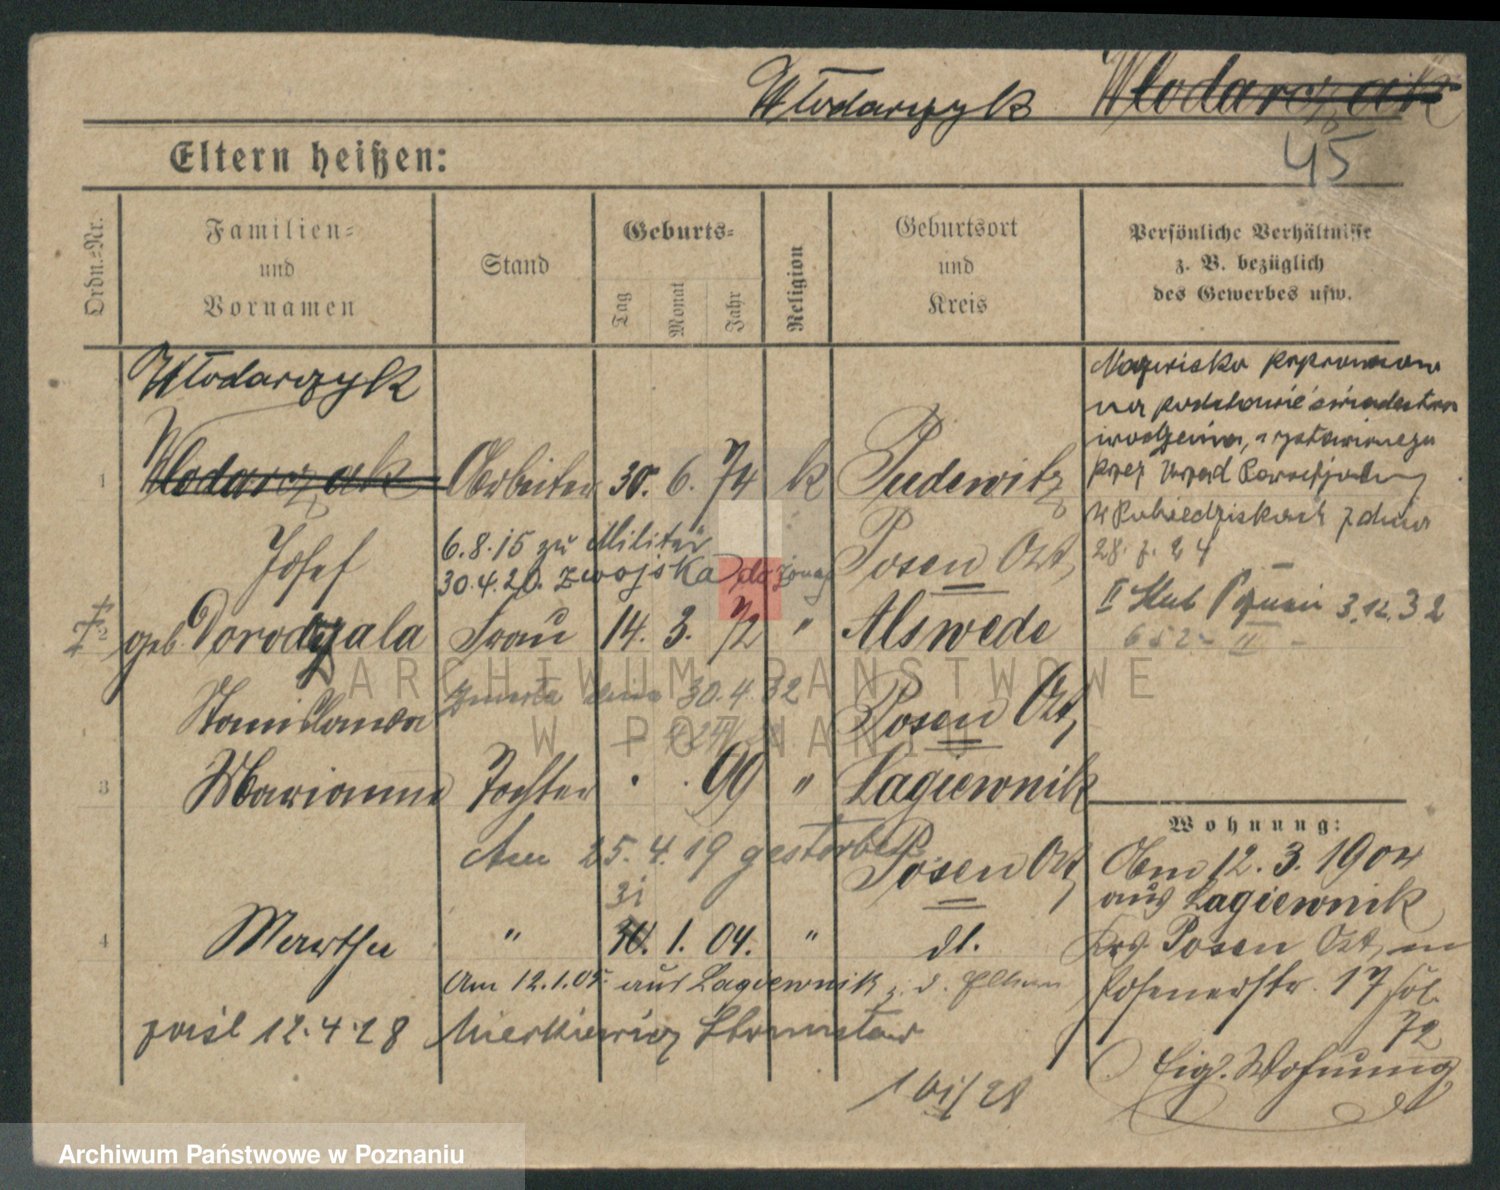 Włodarczyk Wlodarczak
45
Eltern heißen:
Ordn.-Nr.
Familien-
und
Vornamen
Stand
Geburts-
Tag
Monat
Jahr
Religion
Geburtsort
und
Kreis
Persönliche Verhältnisse
z. B. bezüglich
des Gewerbes usw.
Włodarczyk
1 Wlodarczak Arbeiter 30. 6. 74 k Pudewitz
Josef 6.8.15 zu Militär Posen Ost,
30.4.20. z wojska do żony
geb. Dorodzala Frau 14. 3. 72 " Alswede
Stanislawa zmarła dnia 30.4.32 Posen Ost,
3 Marianna Tochter . . 99 " Lagiewnik
Am 25.4.19 gestorben Posen Ost,
31
4 Martha " 30. 1. 04. " dt.
Am 12.1.05. aus Lagiewnik z. d. Eltern
12.4.28
Nazwisko poprawiono
na podstawie świadectwa
urodzenia, wystawionego
przez Urząd Parafjalny
w Pobiedziskach z dnia
28. 7. 24
II 3.12.32
Wohnung:
Am 12. 3. 1904
aus Lagiewnik
Krs. Posen Ost, in
Posenerstr. 17
72
Eig. Wohnung
ARCHIWUM PAŃSTWOWE
W POZNANIU
Archiwum Państwowe w Poznaniu